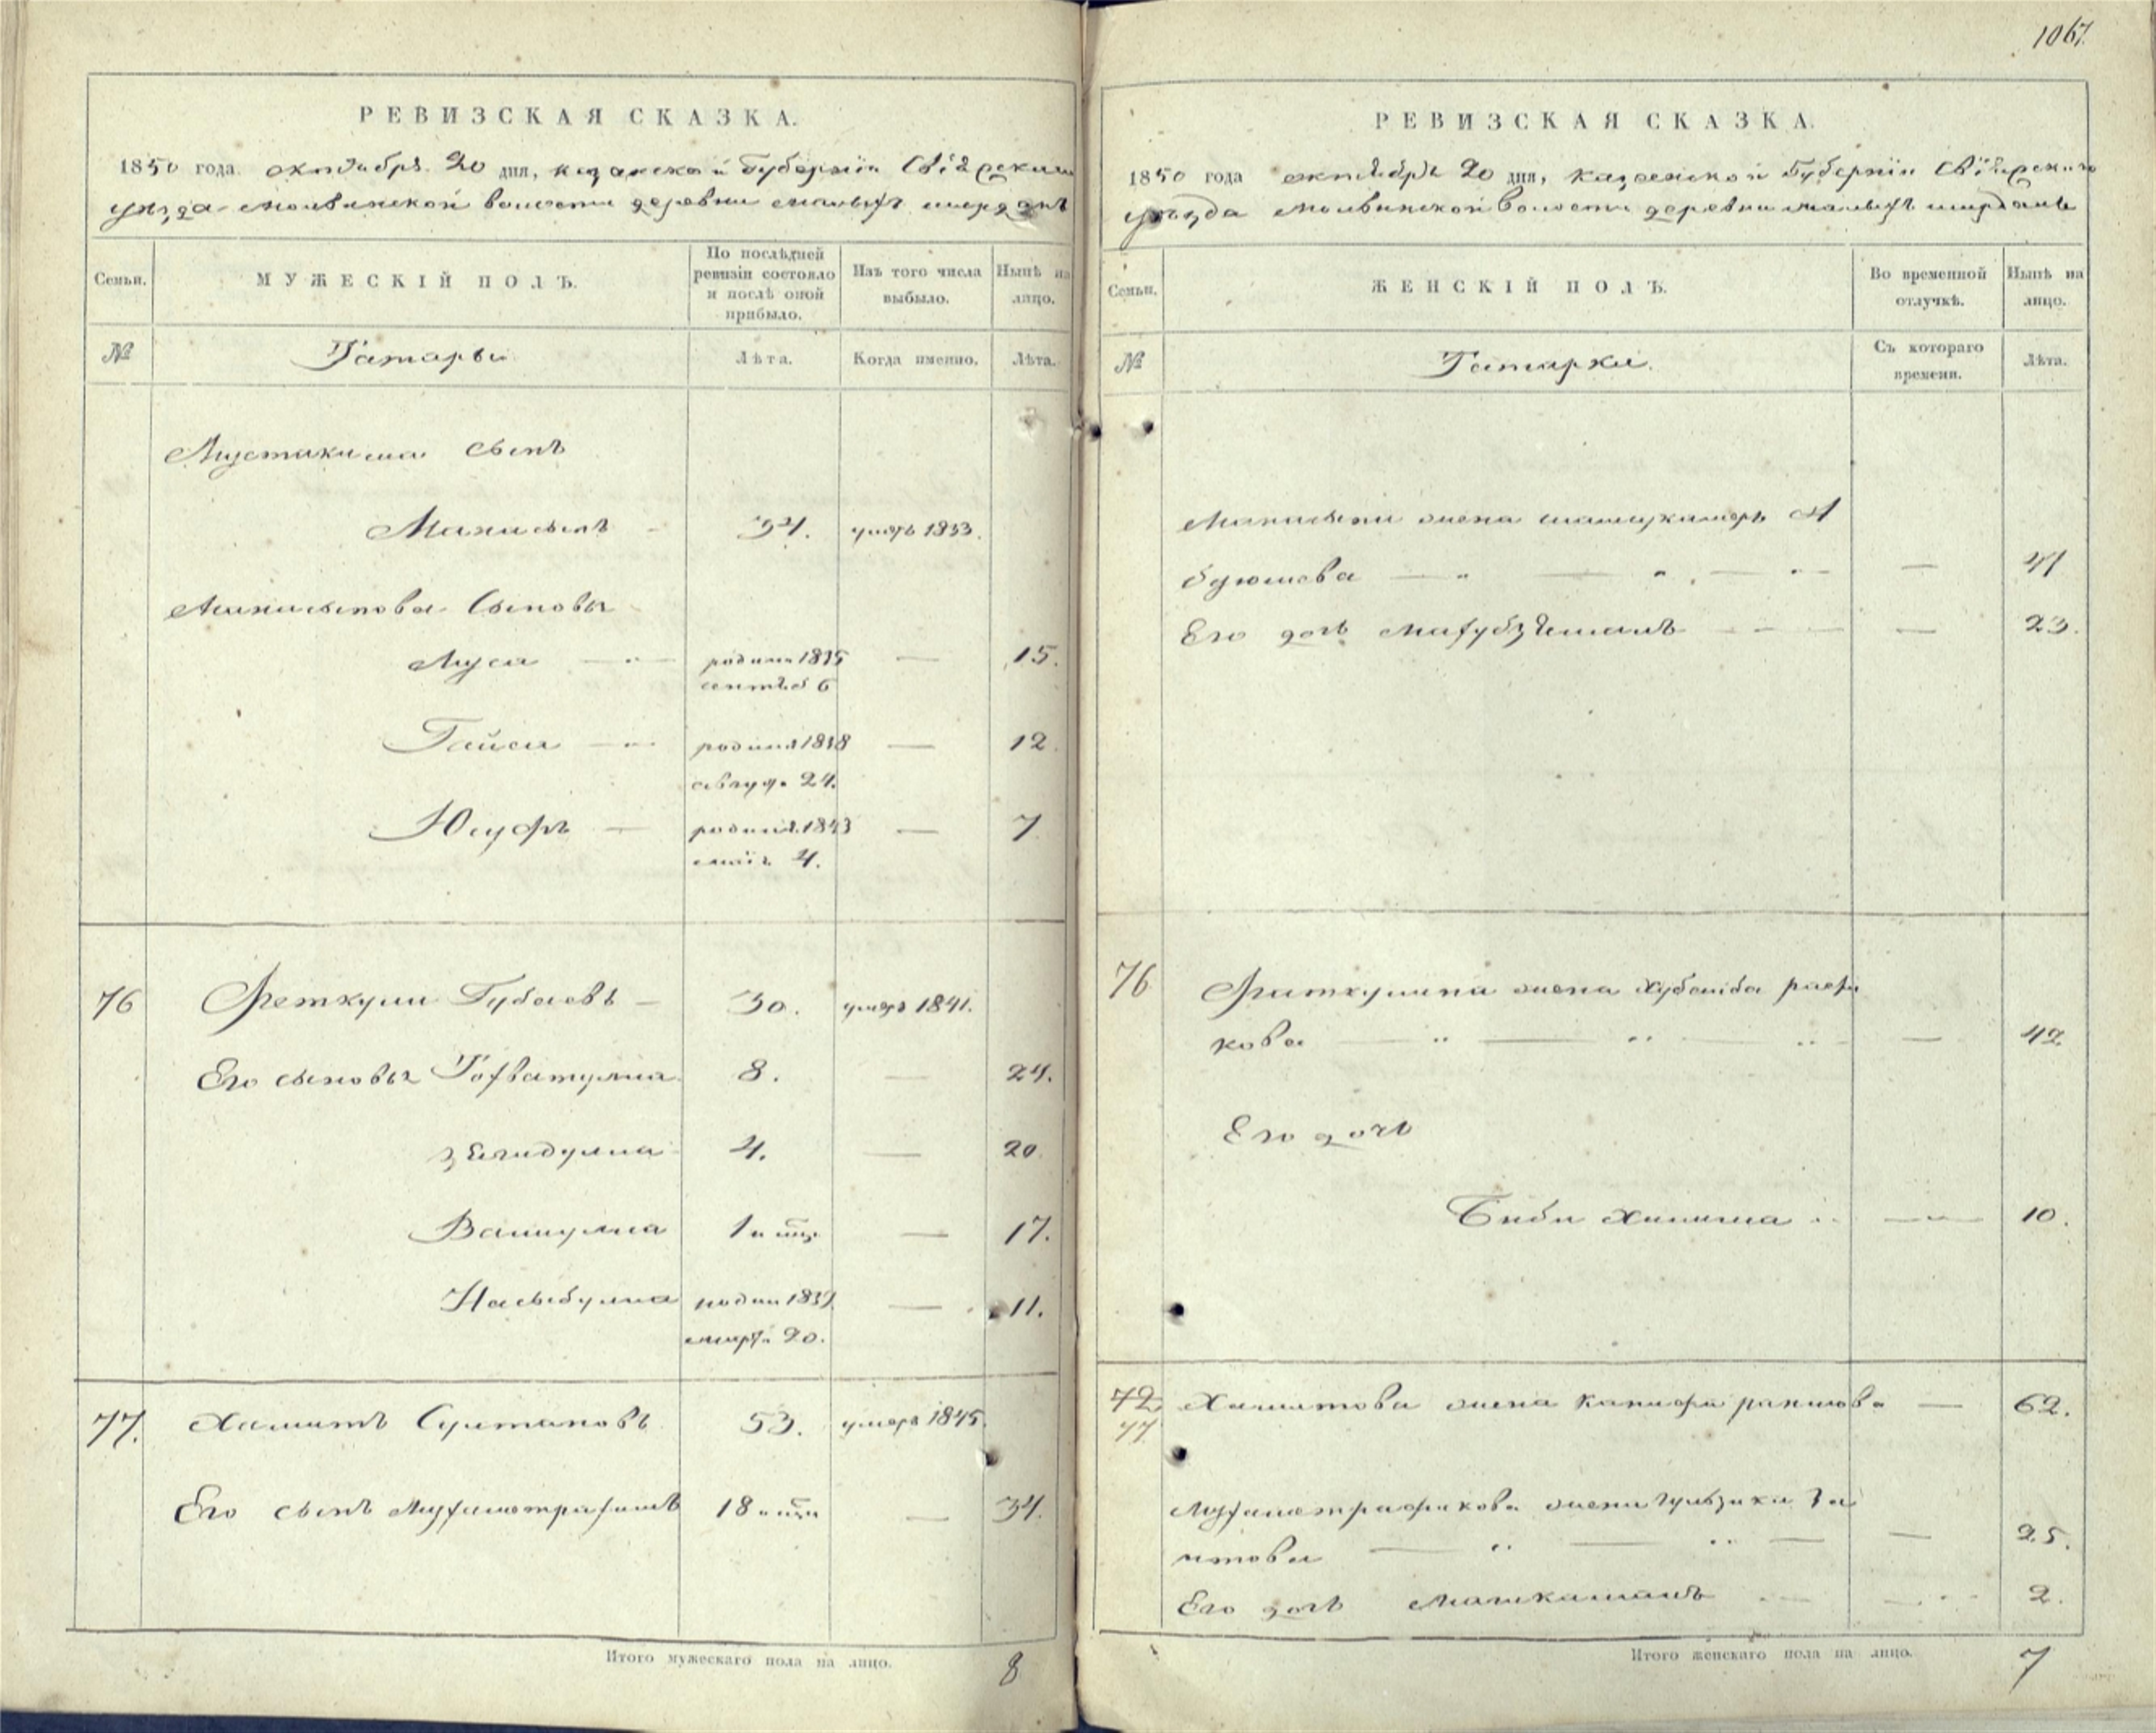 1067.
РЕВИЗСКАЯ СКАЗКА.
1850 года октября 20 дня, казанской Губернiи Свiяжскаго
уезда молвинской волости деревни малыхъ ширданъ
Семьи.
МУЖЕСКІЙ ПОЛЪ.
По послѣдней ревизіи состояло и послѣ оной прибыло.
Изъ того числа выбыло.
Нынѣ на лицо.
№
Татары
Лѣта.
Когда именно.
Лѣта.
Мустакима сынъ
34. умеръ 1833.
сыновья
Муса родился 1835 15.
сентяб 6
Гайса родился 1838 12
авгус. 24.
Юсуфъ родился 1843 7
маiя 4.
76 Феткули Губаевъ 30. умеръ 1841.
Его сыновья 8. 24.
4. 20.
Валиулла 1 17.
Насыбулла родил 1839 11.
марта 20.
77. Хамитъ Султановъ 53. умеръ 1845.
Его сынъ 18 34.
Итого мужескаго пола на лицо. 8
РЕВИЗСКАЯ СКАЗКА.
1850 года октября 20 дня, казанской Губернiи Свiяжскаго
уезда молвинской волости деревни малыхъ ширданъ
Семьи.
ЖЕНСКІЙ ПОЛЪ.
Во временной отлучкѣ.
Нынѣ на лицо.
№
Татарки.
Съ котораго времени.
Лѣта.
жена А
бдюшева 41
Его дочь 23.
76 Фаткулина жена Хубейба рафи
кова 42
Его дочь
Биби Халима 10.
72 Хамитова жена 62.
77
жена
итова 25.
Его дочь 2.
Итого женскаго пола на лицо. 7